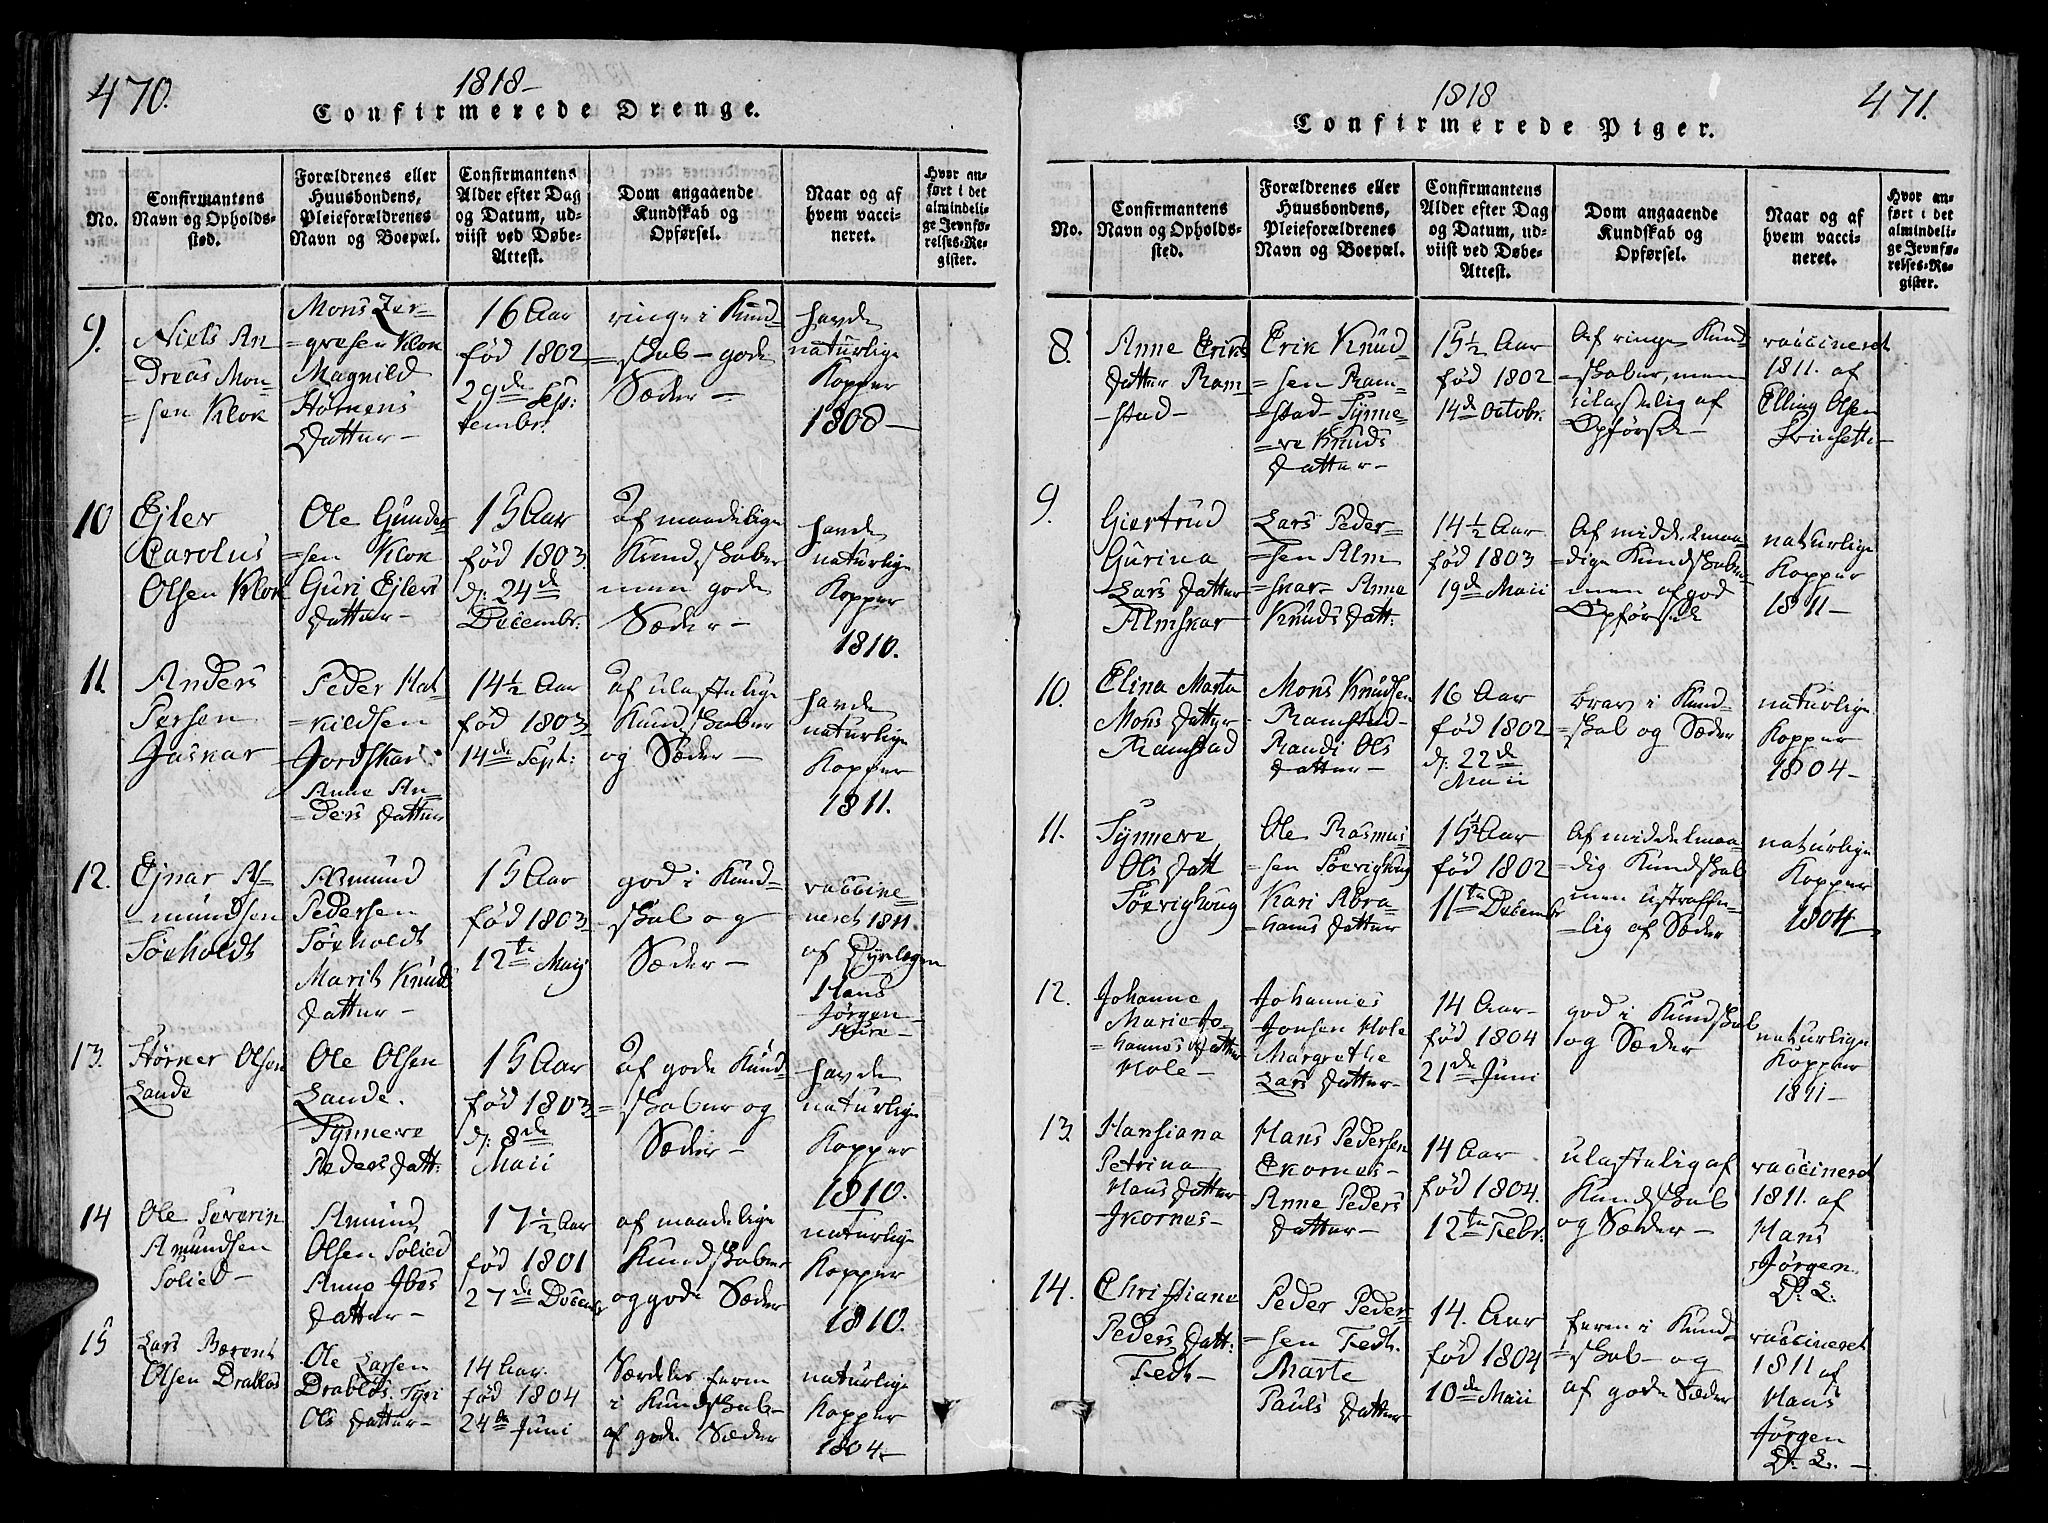 470.
1818-
Confirmerede Drenge.
No.
Confirmantens
Navn og Opholds-
sted.
Forældrenes eller
Huusbondens,
Pleieforældrenes
Navn og Boepæl.
Confirmantens
Alder efter Dag
og Datum, ud-
viist ved Døbe-
Attest.
Dom angaaende
Kundskab og
Opførsel.
Naar og af
hvem vacci-
neret.
Hvor an-
ført i det
almindeli-
ge Jevnfø-
relses-Re-
gister.
9.
Niels An
=dreas Mon=
=sen Klok
Mons
=gresen Klok
Magnild
Datter-
16 Aar
født 1802
29de Sep:
tembr.
ringe i Kund=
=skab- gode
Sæder-
havde
naturlige
Kopper
1808-
10
Ejler
Carolus
Olsen Klok
Ole Gunder
=sen Klok
Guri Ejlers
Datter-
15 Aar
fød 1803.
d: 24de
Decembr.
af maadelige
Kundskaber
men gode
Sæder-
havde
naturlige
Kopper
1810.
11.
Anders
Persen
Peder Hal
=kildsen
Anne An=
=ders Datter
14½ Aar
fød 1803
14de Sept:
af ulastelige
Kundskaber
og Sæder-
havde
naturlige
Kopper
1811.
12.
Ejnar A
=mundsen
Søeholdt
Amund
Pedersen
Søeholdt
Marit Knuds
Datter-
15 Aar
fød 1803
12te Maij
god i Kund=
=skab og
Sæder-
vaccine=
neret 1811.
af Dyrlægen
Hans
Jørgen-
13.
Olsen
Lande
Ole Olsen
Lande.
Synneve
Peders Datt:
15 Aar
fød 1803
d: 8de
Maii
af gode Kund
=skaber og
Sæder-
havde
naturlige
Kopper
1810.
14
Ole Severin
Amundsen
Solied-
Amund
Olsen Solied
Anne
Datter-
17½ Aar
fød 1801
27de Decembr
af maadelige
Kundskaber
og gode Sæder
naturlige
Kopper
1810.
15
Lars Bærent
Olsen Drabløs
Ole Larsen
Drabløs.
Ols Datter-
14 Aar.
fød 1804
24de Juni
Særdeles ferm
i Kundskab-
af gode Sæder
naturlige
Kopper
1804-
1818
471.
Confirmerede Piger.
No.
Confirmantens
Navn og Opholds-
sted.
Forældrenes eller
Huusbondens,
Pleieforældrenes
Navn og Boepæl.
Confirmantens
Alder efter Dag
og Datum, ud-
viist ved Døbe-
Attest.
Dom angaaende
Kundskab og
Opførsel.
Naar og af
hvem vacci-
neret.
Hvor an-
ført i det
almindeli-
ge Jevnfø-
relses-Re-
gister.
8.
Anne Eriks
Datter Ram
=stad-
Erik Knud=
=sen Ram=
=stad- Synne=
=ve Knuds
Datter-
15½ Aar
fød 1802
14de Octobr.
Af ringe Kund
=skaber, men
ulastelig af
Opførsel-
vaccineret
1811. af
Elling Olsen
9.
Giertrud
Gurina
Lars Datter
Almskar
Lars Peder=
=sen Alm
=skar- Anne
Knuds Datt:
14½ Aar
fød 1803
19de Maii
Af middelmaa=
dige Kundskaber
men af god
Opførsel
naturlige
Kopper
1811-
10.
Elina Marta
Mons Datter
Ramstad
Mons Knudsen
Ramstad-
Randi Ols
Datter-
16 Aar
fød 1802
d: 22de
Maii
brav i Kund=
=skab og Sæder
naturlige
Kopper
1804-
11.
Synneve
Ols Datt
Ole Rasmus
=sen
Kari Abra=
=hams Datter
15½ Aar
fød 1802
11te Decembr
Af middelmaa=
=dig Kundskab
men ustraffe=
=lig af Sæder
naturlige
Kopper
1804-
12.
Johanne
Marie Jo=
=hannes Datter
Hole-
Johannes
Jonsen Hole
Margrethe
Lars Datter-
14 Aar-
fød 1804
21de Juni
god i Kundskab
og Sæder
naturlige
Kopper
1811-
13.
Hansiana
Petrina
Hans Datter
Ikornes-
Hans Pedersen
Ekornes-
Anne Peders
Datter-
14 Aar
fød 1804.
12te Febr.
ulastelig af
Kundskab
og Sæder-
vaccineret
1811. af
Hans
Jørgen.
D: L:
14.
Christiane
Peders Datt:
Fedt-
Peder Peder
=sen Fedt.
Marte
Pauls Datter
14. Aar
fød 1804
10de Maii
ferm i Kund=
=skab- og
af gode Sæder
vaccineret
1811 af
Hans
Jørgen
D: L.-